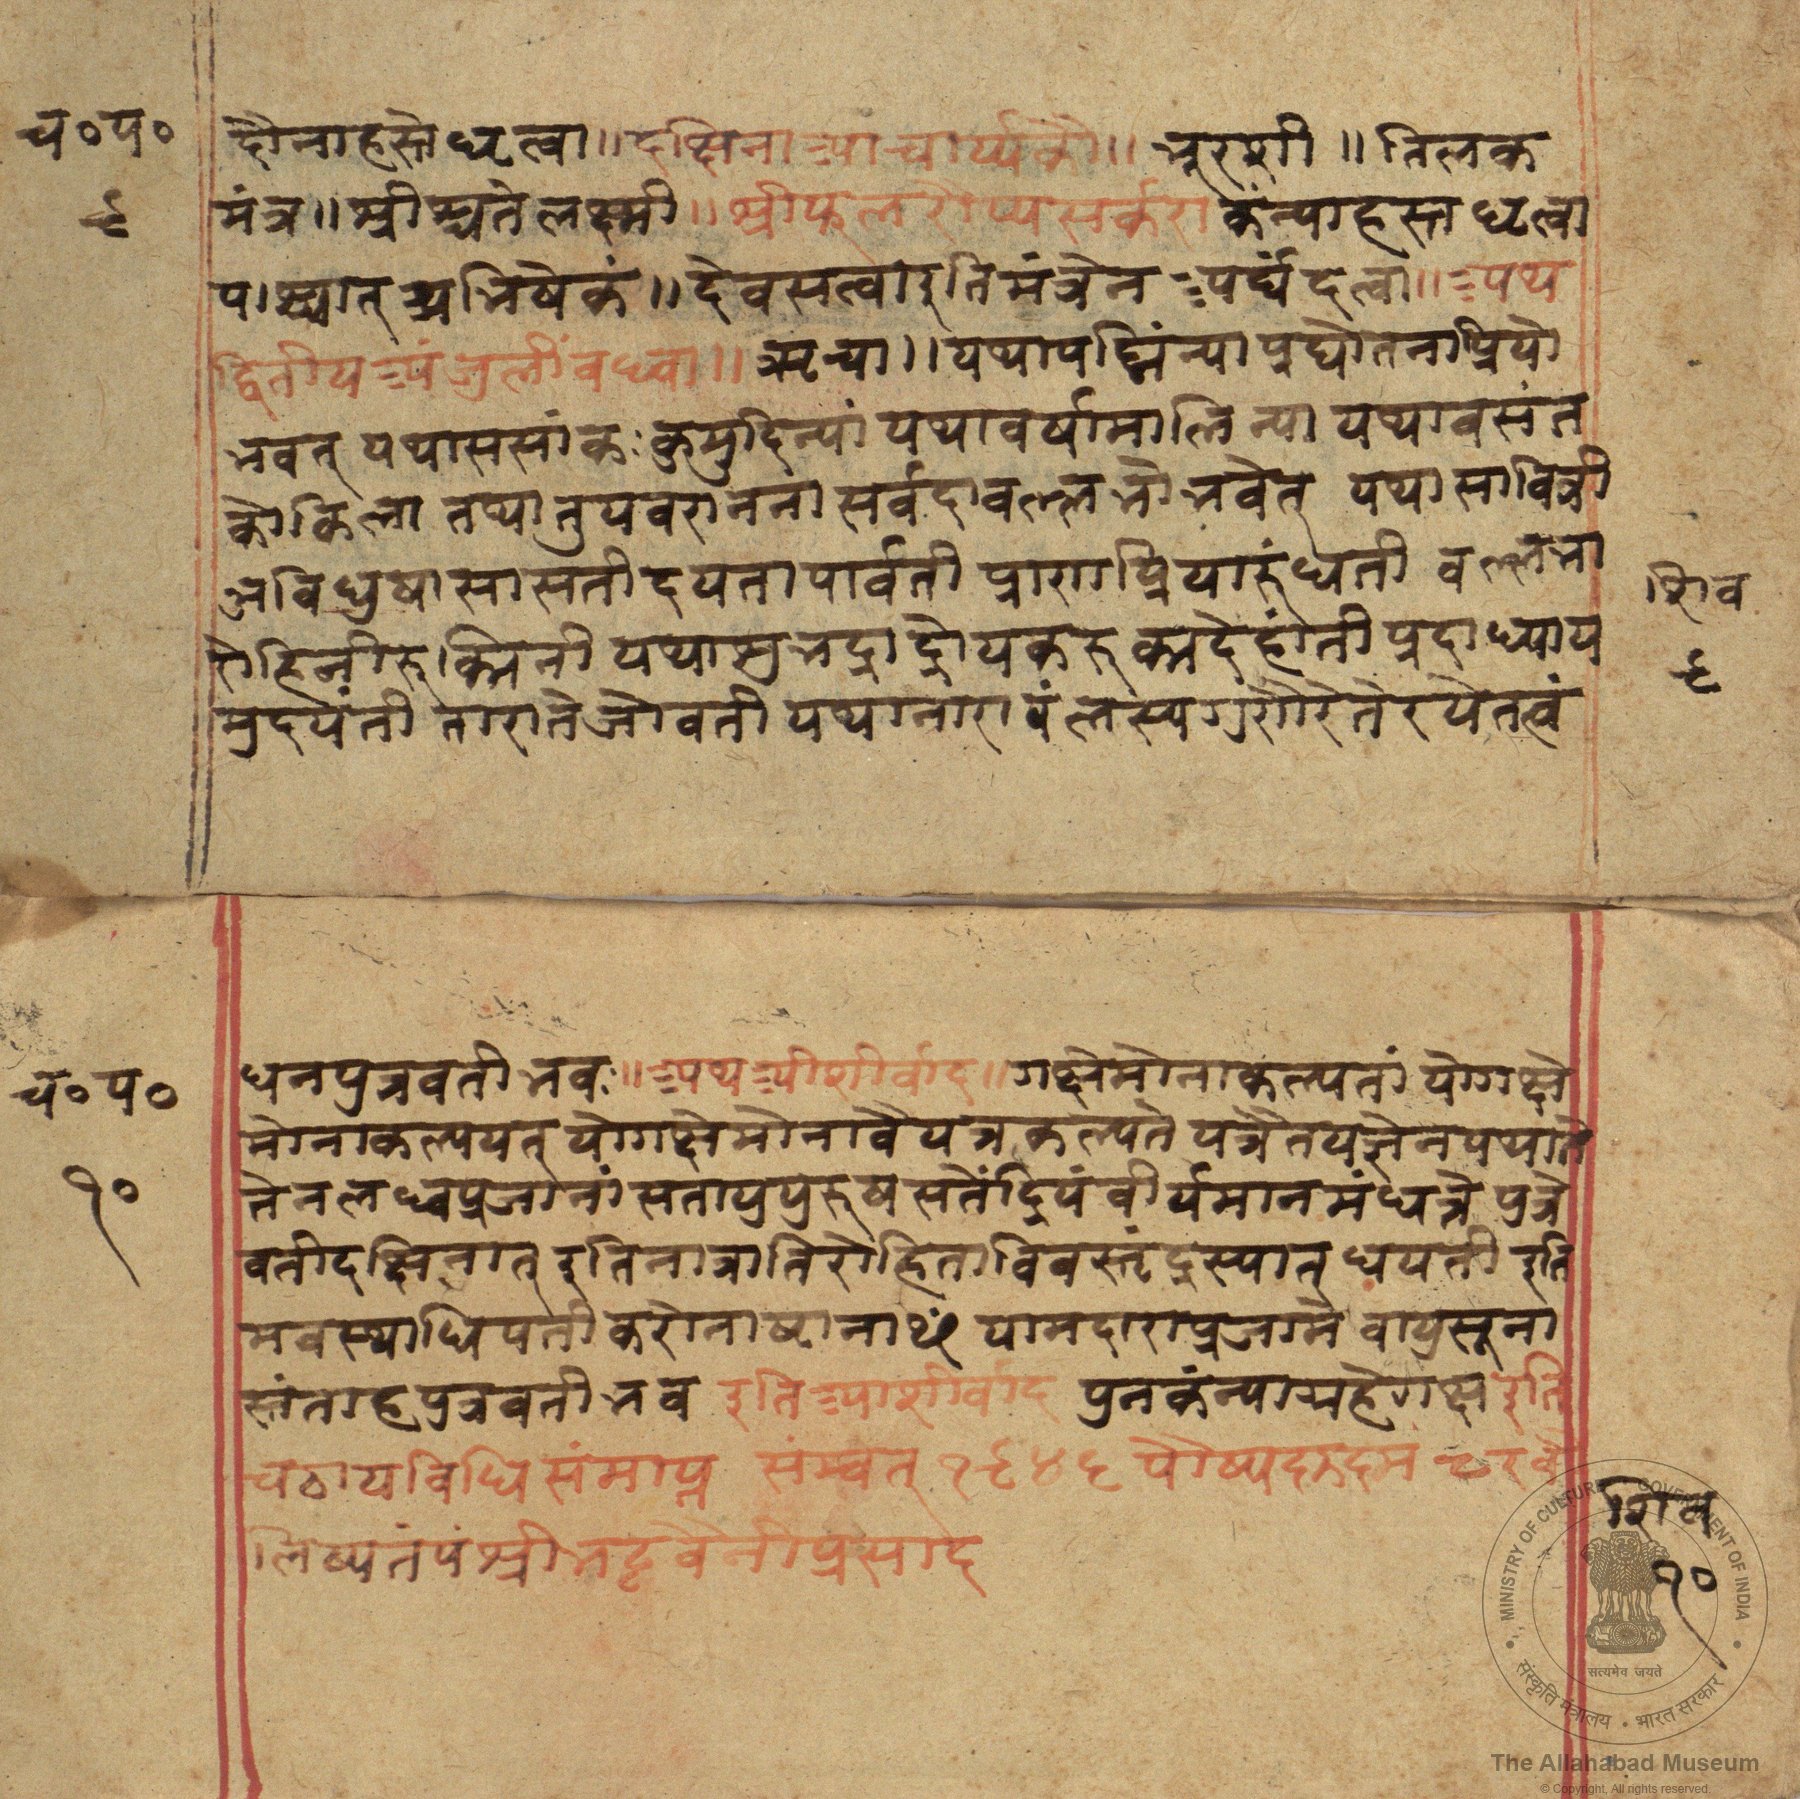 च॰प॰
९
दौनाहस्तेधृत्वा॥दक्षिना आचार्य्यकौ॥ भुरशी ॥ तिलक
मंत्र॥श्रीश्चतेलक्ष्मी॥श्रीफलरोप्यसर्करा कंन्याहस्तधृत्वा
पश्चात् अभिषेकं॥देवसत्वाइतिमंत्रेन अर्घंदत्वा॥अथ
द्वितीयअंजुलींवध्वा॥ऋचा॥यथापद्मिंन्यापुद्योतनाप्रियो
भवत् यथाससांकः कुमुदिन्यां यथावर्षामालिन्या यथावसंत
कोकिला तथातुयवरानना सर्वदावल्लभोभवेत् यथासावित्री
अविधुषासासतीदयतापार्वती प्राराप्रियारुंधती वल्लभा
रोहिनीरुक्मिनी यथासुभद्राद्रोयकरुक्मदेहांती प्रदाध्याय
म्रदयंती तारातेजोवती यथा
शिव
९
च॰प॰
१०
धनपुत्रवतीभवः॥अथ आशीर्वाद॥गक्षेमोनाकल्पतां योगक्षे
मोनाकल्पयत् योगक्षेमोनावैयत्रकल्पते यत्रैतयज्ञेनपयाते
तेनलध्वप्रजानां सतापुपुरुषसतेंद्रियं वीर्यमानमंधत्ते पुत्र
वतीदक्षिनात् इतिनात्रातिरोहिता
मवस्थाधिपतीकरोनाष्टानाथं यामदाराप्रजामे वापुसूना
स्तंताहपुत्रवतीभव इतिआशीर्वाद पुनकंन्याग्रहेगक्ष इति
चठायविधिसंमाप्त संम्वत् १९४६ पौष्य
लिष्यतंपंश्रीभट्टवेनीप्रसाद
शिव
१०
MINISTRY OF CULTURE GOVERNMENT OF INDIA
सत्यमेव जयते
संस्कृति मंत्रालय • भारत सरकार
The Allahabad Museum
© Copyright, All rights reserved.